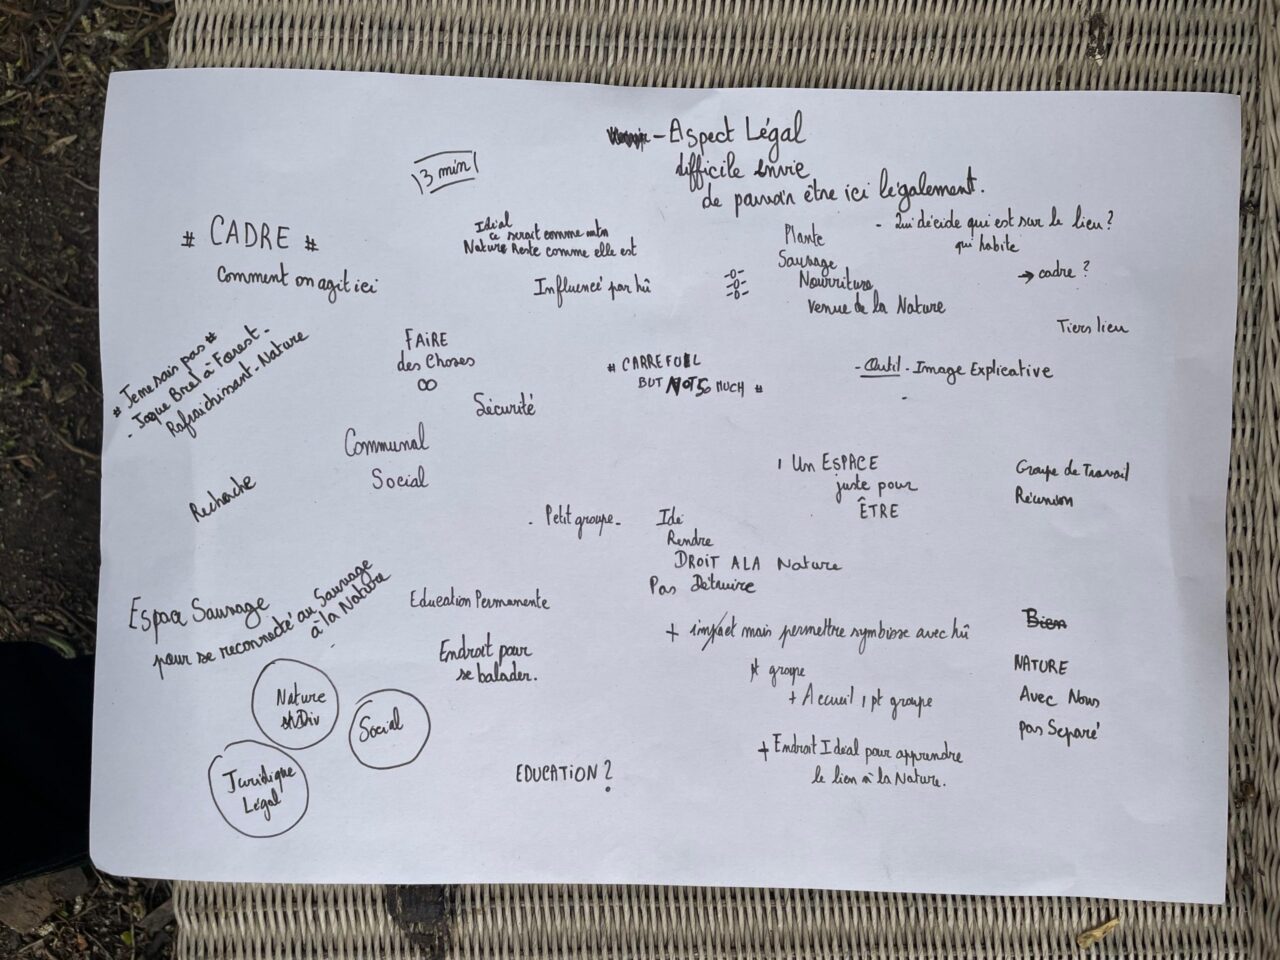 - Aspect Légal
difficile envie
de pouvoir être ici légalement.
3 min
# CADRE #
Comment on agit ici
Idéal
ce serait comme mtn
Nature Reste comme elle est
Influencé par hû
Plante
Sauvage
Nourriture
venue de la Nature
- Qui décide qui est sur le lieu ?
qui habite
→ cadre ?
Tiers lieu
# Je me sais pas #
- Jaque Brel à Forest -
Rafraichissant - Nature
FAiRE
des Choses
∞
Sécurité
# CARREFOUL
BUT NOT SO MUCH #
- Outil - Image Explicative
Communal
Social
Recherche
1 Un ESPACE
juste pour
ÊTRE
Groupe de Travail
Réunion
- Petit groupe -
Idé
Rendre
DROIT A LA Nature
Pas Détruire
Espace Sauvage
pour se reconnecté au Sauvage
à la Nature
Education Permanente
Endroit pour
se balader.
+ impact mais permettre symbiose avec hû
pt groupe
+ Accueil 1 pt groupe
+ Endroit Idéal pour apprendre
le lien à la Nature.
Bien
NATURE
Avec Nous
pas Separé
Nature
Div
Social
Juridique
Légal
EDUCATION ?